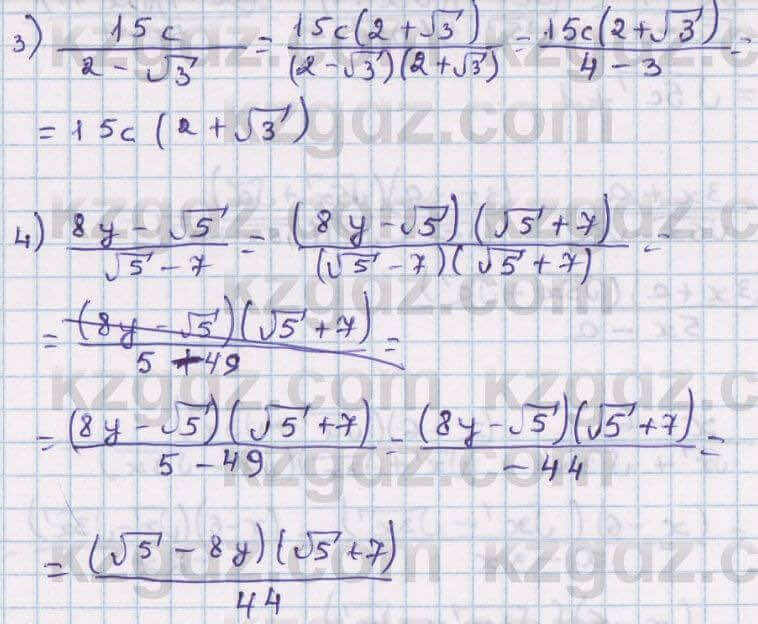 3) 15c / (2 - √3) = 15c(2 + √3) / (2 - √3)(2 + √3) = 15c(2 + √3) / (4 - 3) =
= 15c (2 + √3)
4) (8y - √5) / (√5 - 7) = (8y - √5)(√5 + 7) / (√5 - 7)(√5 + 7) =
= (8y - √5)(√5 + 7) / (5 + 49) =
= (8y - √5)(√5 + 7) / (5 - 49) = (8y - √5)(√5 + 7) / (-44) =
= (√5 - 8y)(√5 + 7) / 44
kzgdz.com